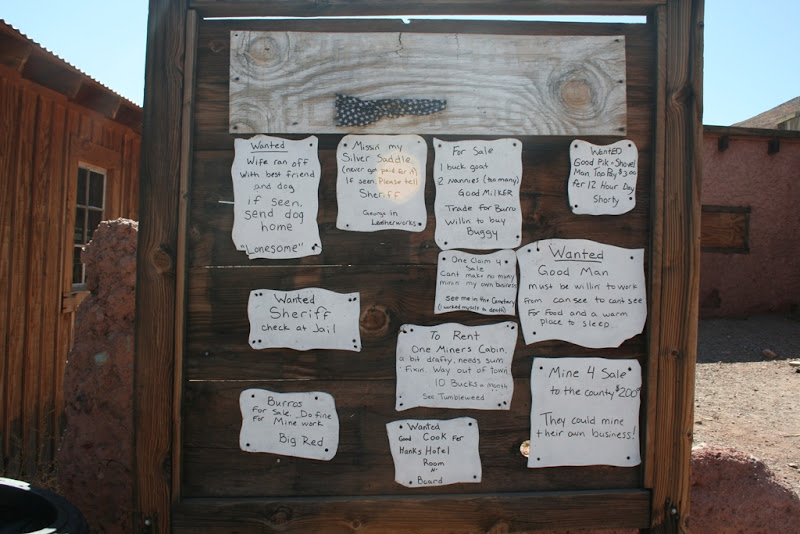 Wanted
Wife ran off
With best friend
and dog
if seen,
send dog
home
"Lonesome"
Missin my
Silver Saddle
(never got paid for it)
If seen Please tell
Sheriff
George in
Leatherworks
For Sale
1 buck goat
2 Nannies (too many)
Good MilkER
Trade for Burro
Willin to buy
Buggy
WantED
Good Pik n Shovel
Man Top Pay $3.00
Per 12 Hour Day
Shorty
One Claim 4
Sale
Cant make no money
minin my own business
see me in the Cemetary
(I worked myself to death)
Wanted
Good Man
must be willin to work
from can see to cant see
For Food and a warm
place to sleep...
Wanted
Sheriff
check at Jail
To Rent
One Miners Cabin,
a bit drafty, needs sum
Fixin. Way out of town
10 Bucks a month
See Tumbleweed
Mine 4 Sale
to the county $200
They could mine
their own business!
Burros
For Sale. Do fine
For Mine work
Big Red
Wanted
Good Cook for
Hanks Hotel
Room
N'
Board